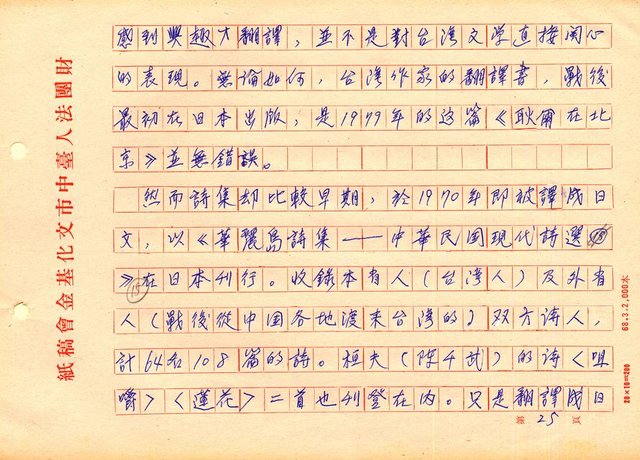 感到興趣才翻譯，並不是對台灣文学直接関心
的表現。無論如何，台灣作家的翻譯書，戰後
最初在日本出版，是1979年的这篇《耿爾在北
京》並無錯誤。
然而詩集却比較早期，於1970年即被譯成日
文，以《華麗島詩集——中華民国現代詩選
》在日本刊行。收錄本省人（台灣人）及外省
人（戰後從中国各地渡来台灣的）双方詩人，
計64名108篇的詩。桓夫（陳千武）的诗〈咀
嚼〉〈蓮花〉二首也刊登在内。只是翻譯成日
15
第 25 頁
財團法人臺中市文化基金會稿紙
68.3.2,000本
20×10=200